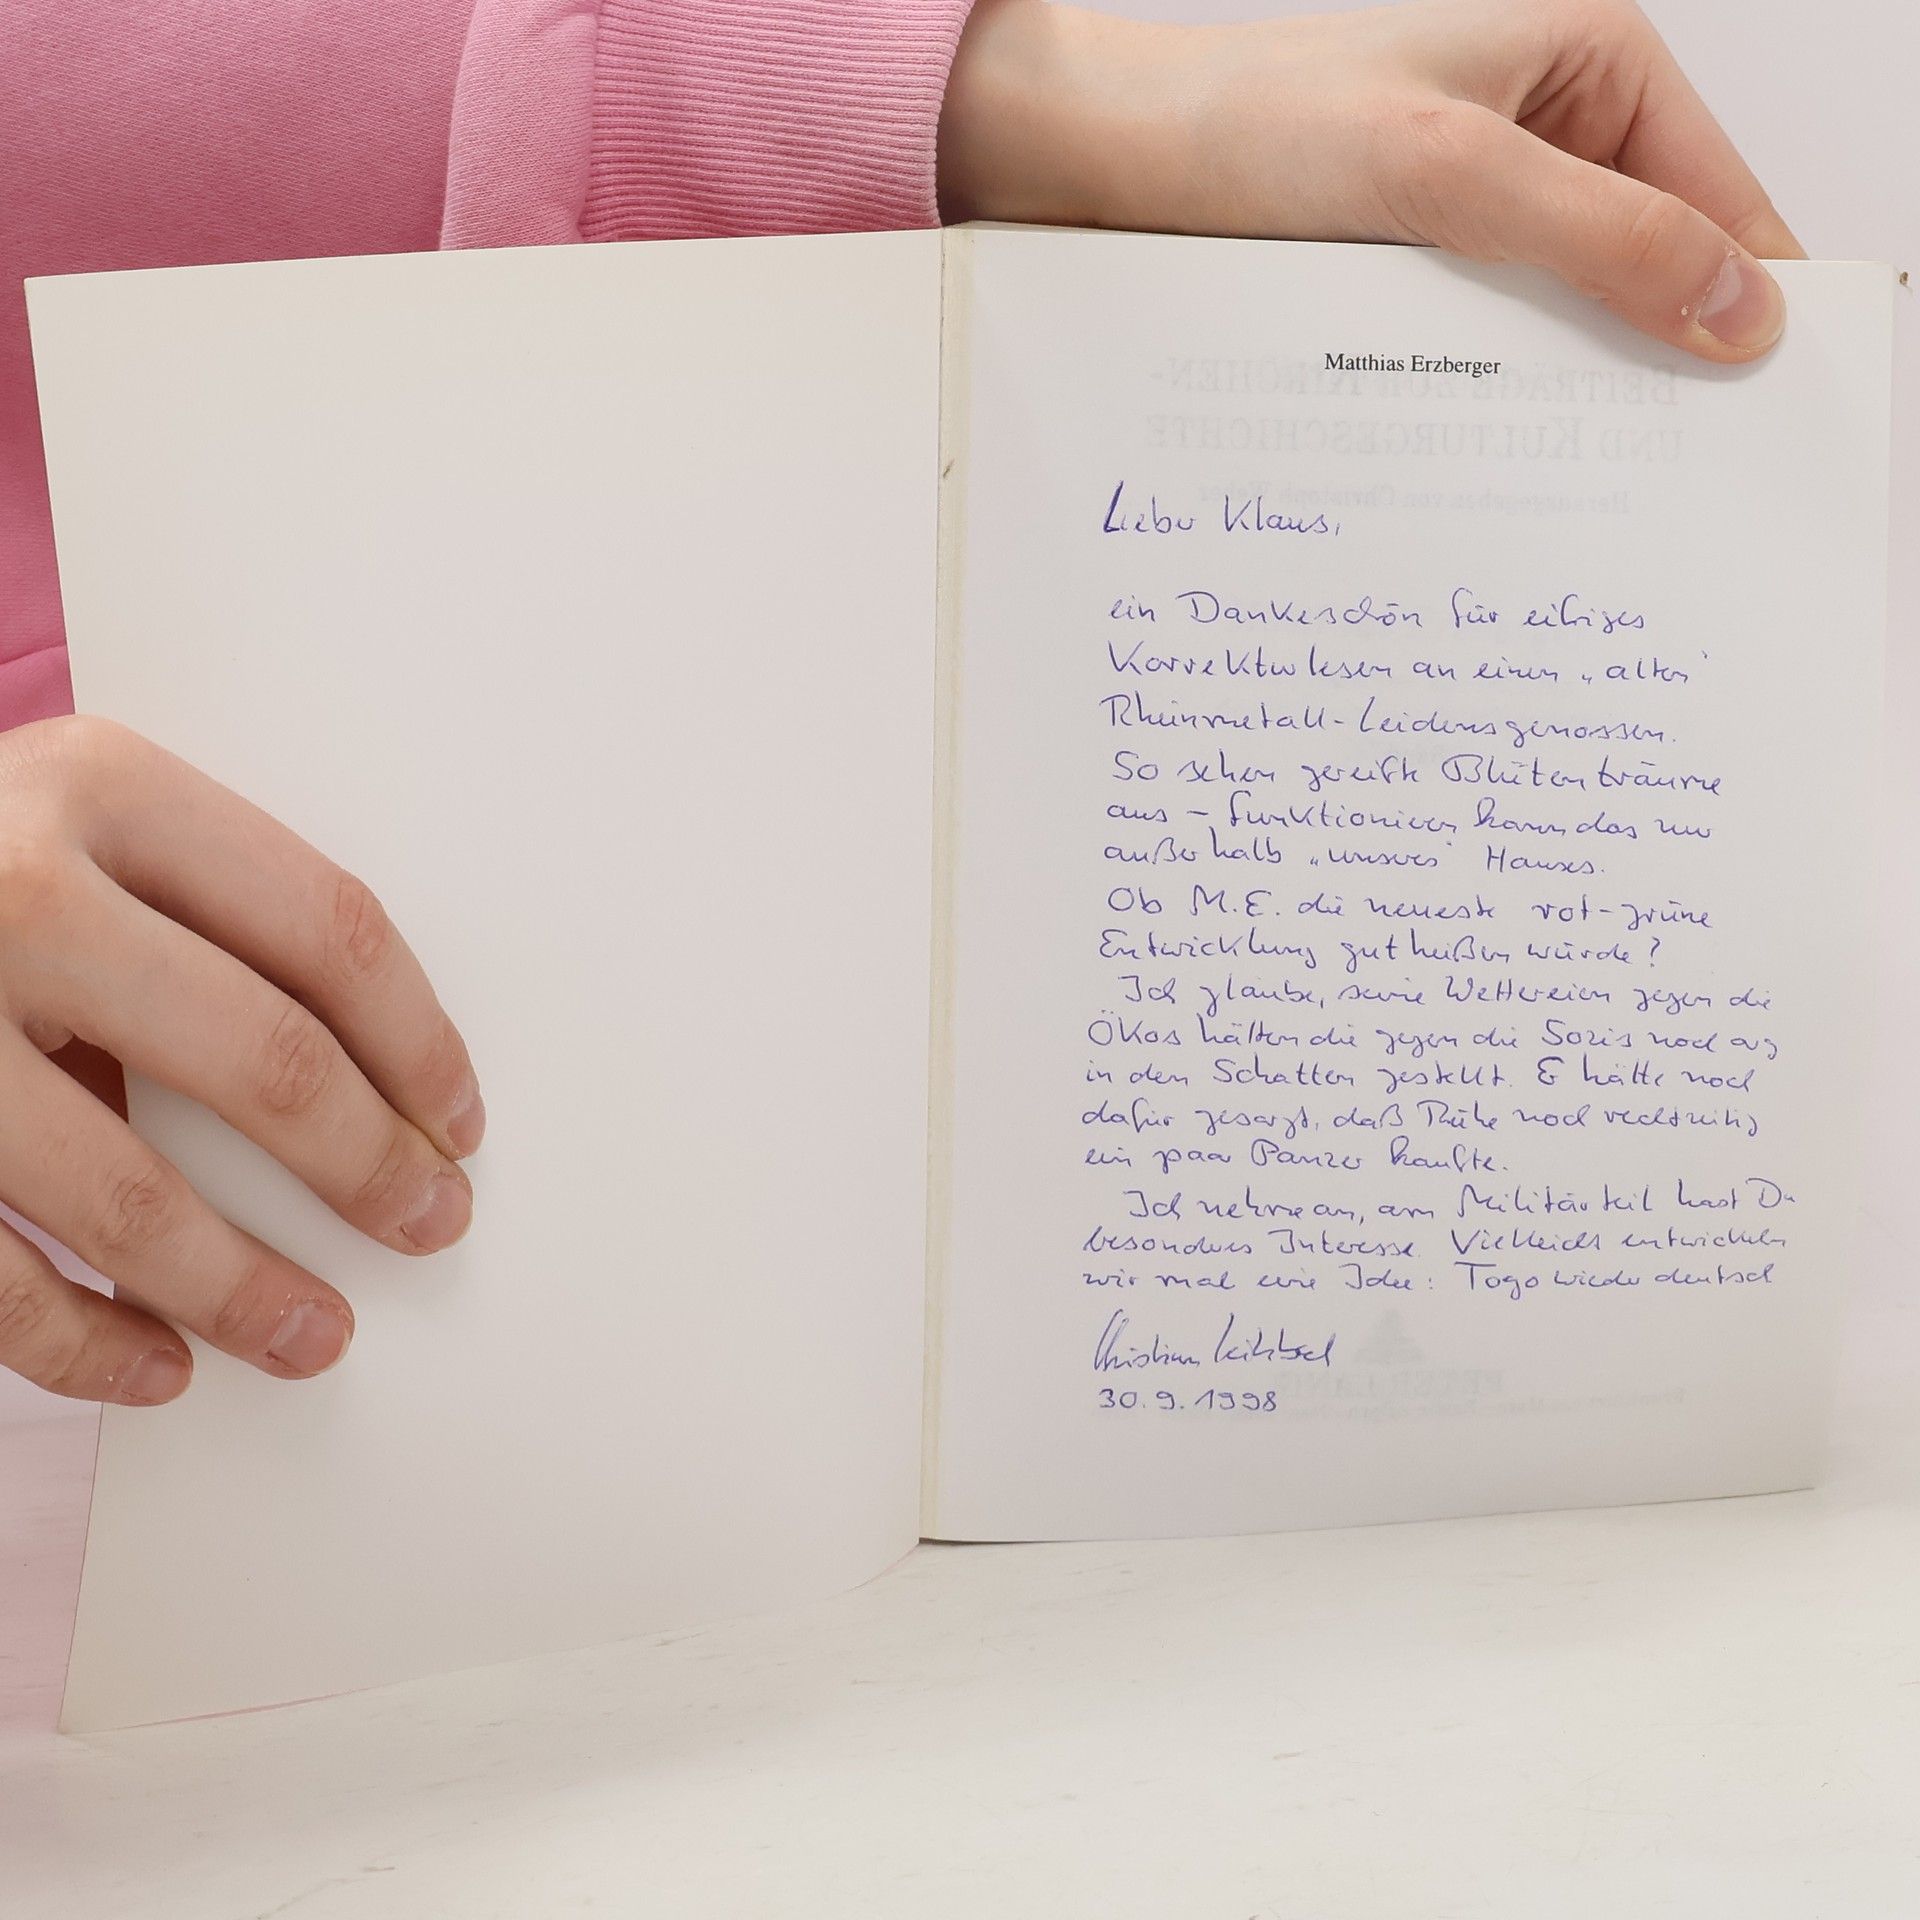 Matthias Erzberger
BEITRÄGE ZUR KIRCHEN-
UND KULTURGESCHICHTE
Herausgegeben von Christoph Weber
Lieber Klaus,
ein Dankeschön für eifriges
Korrekturlesen an einen „alten"
Rheinmetall-Leidensgenossen.
So sehen gereifte Blütenträume
aus – funktionieren kann das nur
außerhalb „unseres" Hauses.
Ob M.E. die neueste rot-grüne
Entwicklung gutheißen würde?
Ich glaube, seine Wettereien gegen die
Ökos hätten die gegen die Sozis noch arg
in den Schatten gestellt. Er hätte noch
dafür gesorgt, daß Rühe noch rechtzeitig
ein paar Panzer kaufte.
Ich nehme an, am Militärteil hast Du
besonderes Interesse. Vielleicht entwickeln
wir mal eine Idee: Togo wieder deutsch
Christian
30.9.1998
PETER LANG